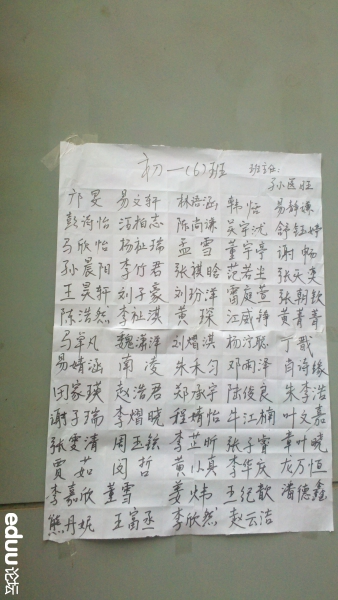 初一(6)班 班主任:
孙医旺
邝旻 易文轩 林语涵 韩怡 易静谦
彭诗怡 冯柏志 陈尚谦 吴宇沈 舒钰婷
马欣怡 杨祉瑞 孟雪 董宇亭 谢畅
孙晨阳 李竹君 张祺晗 范若尘 张天奕
王昊轩 刘子豪 刘玢洋 雷庭萱 张朝钦
陈浩然 李祉淇 黄琛 江威铮 黄菁菁
马单凡 魏潇萍 刘熠淇 杨泞聪 丁戬
易婧涵 南凌 朱禾匀 邓雨泽 肖诗缘
闵家瑛 赵浩君 郑承宇 陈俊良 朱李浩
谢子瑞 李熠晓 程婧怡 牛江楠 叶文嘉
张雯清 周玉铱 李芷昕 张子寗 章叶晓
贾茹 闵哲 黄小真 李华庆 龙万恒
李嘉欣 董雪 姜炜 王纪歆 潘德鑫
熊丹妮 王富丞 李欣然 赵云洁
eduu论坛